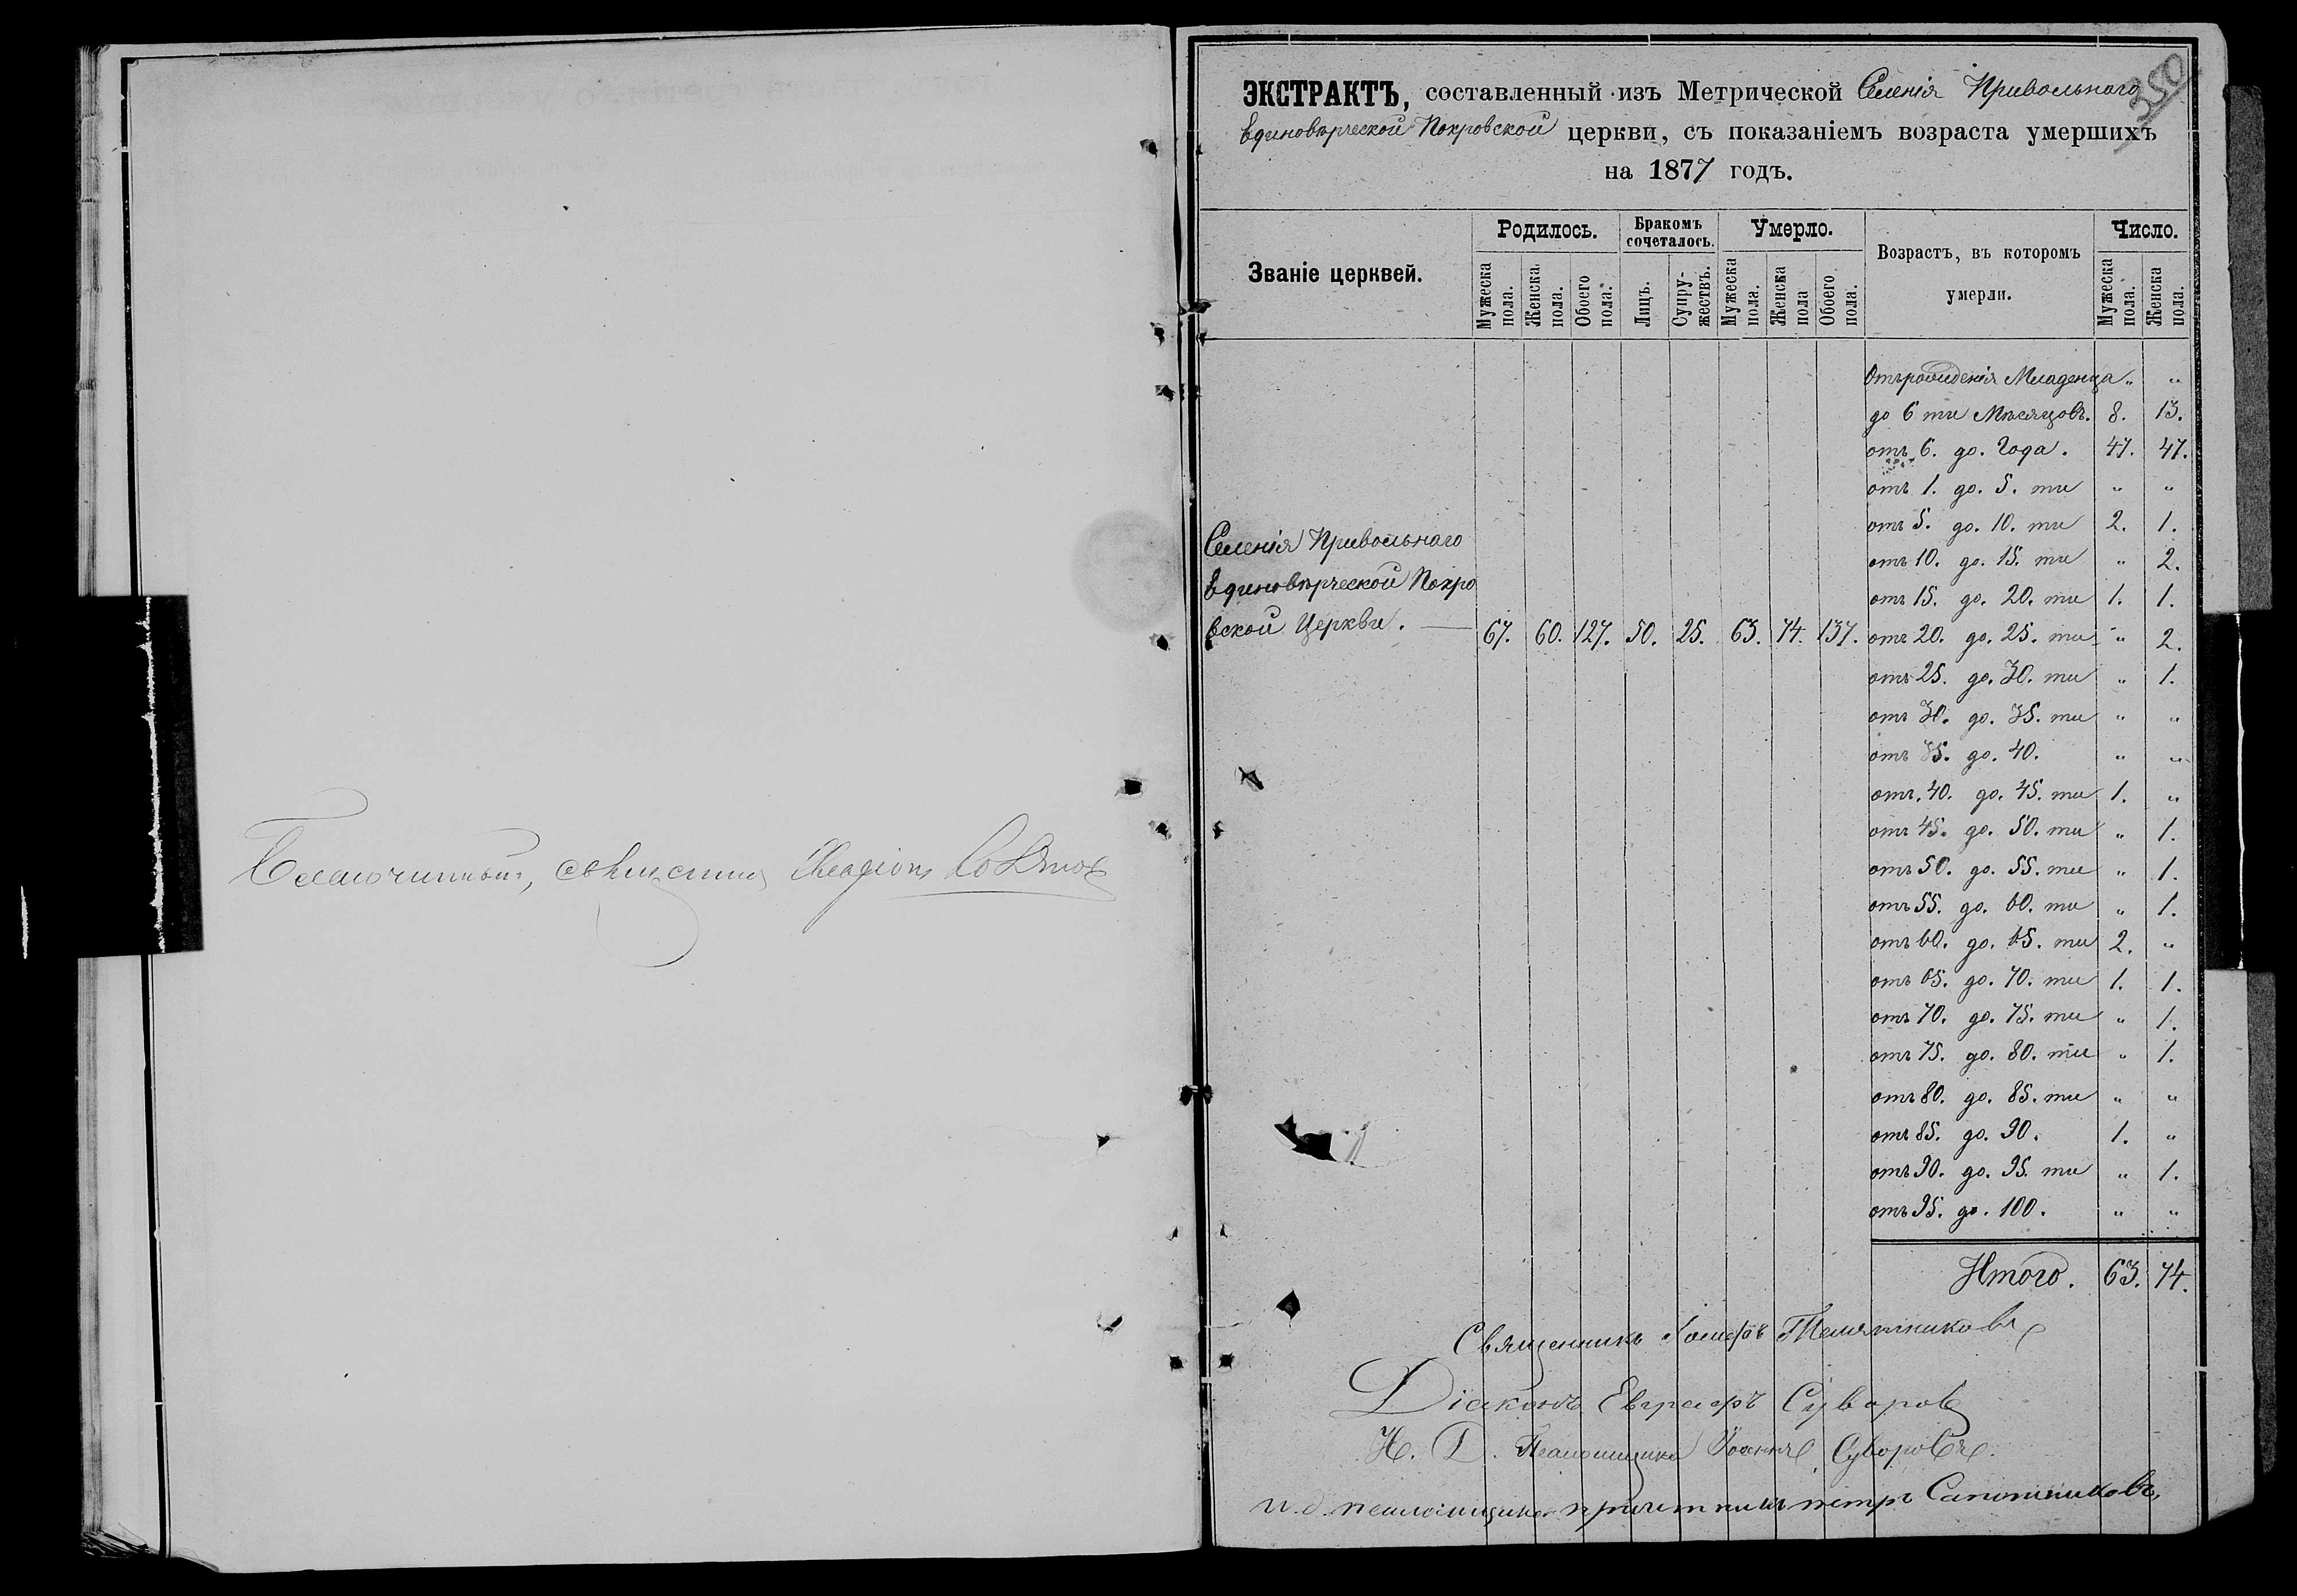 Благочинный, священникъ
350.
ЭКСТРАКТЪ, составленный изъ Метрической Селенія Привольнаго
Единовѣрческой Покровской церкви, съ показаніемъ возраста умершихъ
на 1877 годъ.
Званіе церквей.
Родилось.
Бракомъ сочеталось.
Умерло.
Возрастъ, въ которомъ умерли.
Число.
Мужеска пола.
Женска пола.
Обоего пола.
Лицъ.
Супружествъ.
Мужеска пола.
Женска пола
Обоего пола.
Мужеска пола.
Женска пола.
Отъ рожденія Младенца „ „
до 6 ти Мѣсяцовъ. 8. 13.
отъ 6. до. Года. 47. 47.
отъ 1. до. 5. ти „ „
отъ 5. до. 10. ти 2. 1.
отъ 10. до. 15. ти „ 2.
отъ 15. до. 20. ти 1. 1.
Селенія Привольнаго
Единовѣрческой Покро
вской Церкви. — 67. 60. 127. 50. 25. 63. 74. 137. отъ 20. до. 25. ти „ 2.
отъ 25. до. 30. ти „ 1.
отъ 30. до. 35. ти „ „
отъ 35. до. 40. „ „
отъ. 40. до. 45. ти 1. „
отъ 45. до. 50. ти „ 1.
отъ 50. до. 55. ти „ 1.
отъ 55. до. 60. ти „ 1.
отъ 60. до. 65. ти 2. „
отъ 65. до. 70. ти 1. 1.
отъ 70. до. 75. ти „ 1.
отъ 75. до. 80. ти „ 1.
отъ 80. до. 85. ти „ „
отъ 85. до. 90. 1. „
отъ 90. до. 95. ти „ 1.
отъ 95. до. 100. „ „
Итого. 63. 74.
Священникъ Іосифъ Телятниковъ
Діаконъ Евграфъ Суворовъ
И. Д. Псаломщика Іоаннъ Суворовъ.
и. д. псаломщика причетникъ петръ Сапожниковъ,